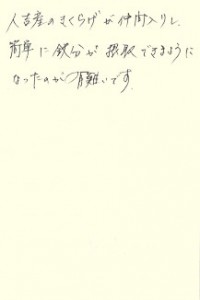 人吉産のきくらげが仲間入りし、
簡単に鉄分が摂取できるように
なったのが有難いです。